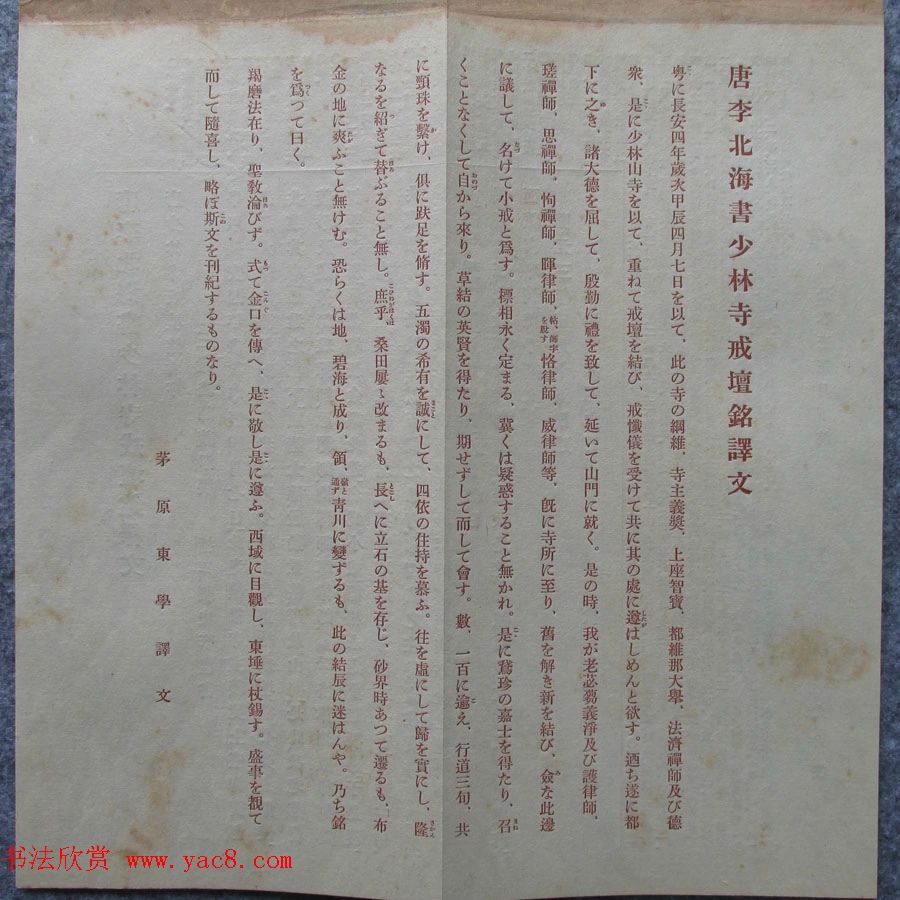 唐李北海書少林寺戒壇銘譯文
粤に長安四年歲次甲辰四月七日を以て、此の寺の綱維、寺主義奬、上座智寶、都維那大擧、法濟禪師及び德
衆、是に少林山寺を以て、重ねて戒壇を結び、戒懺儀を受けて共に其の處に遵はしめんと欲す。迺ち遂に都
下に之き、諸大德を屈して、殷勤に禮を致して、延いて山門に就く。是の時、我が老苾蒭義淨及び護律師、
瑳禪師、思禪師、恂禪師、暉律師、恪律師、威律師等、既に寺所に至り、舊を解き新を結び、僉な此邊
に議して、名けて小戒と爲す。標相永く定まる、冀くは疑惑すること無かれ。是に鵞珍の嘉士を得たり、召
くことなくして自から來り。草結の英賢を得たり、期せずして而して會す。數、一百に逾え、行道三旬、共
に頸珠を繫け、俱に趺足を脩す。五濁の希有を誠にして、四依の住持を慕ふ。往を虛にして歸を實にし、隆
なるを紹ぎて替ぶること無し。庶乎、桑田屢〻改まるも、長へに立石の基を存じ、砂界時あつて遷るも、布
金の地に爽ふこと無けむ。恐らくは地、碧海と成り、領、嶺と通ず靑川に變ずるも、此の結辰に迷はんや。乃ち銘
を爲つて曰く。
羯磨法在り、聖敎淪びず。式て金口を傳へ、是に敬し是に遵ふ。西域に目觀し、東埵に杖錫す。盛事を觀て
而して隨喜し、略ぼ斯文を刊紀するものなり。
茅原東學譯文
书法欣赏 www.yac8.com